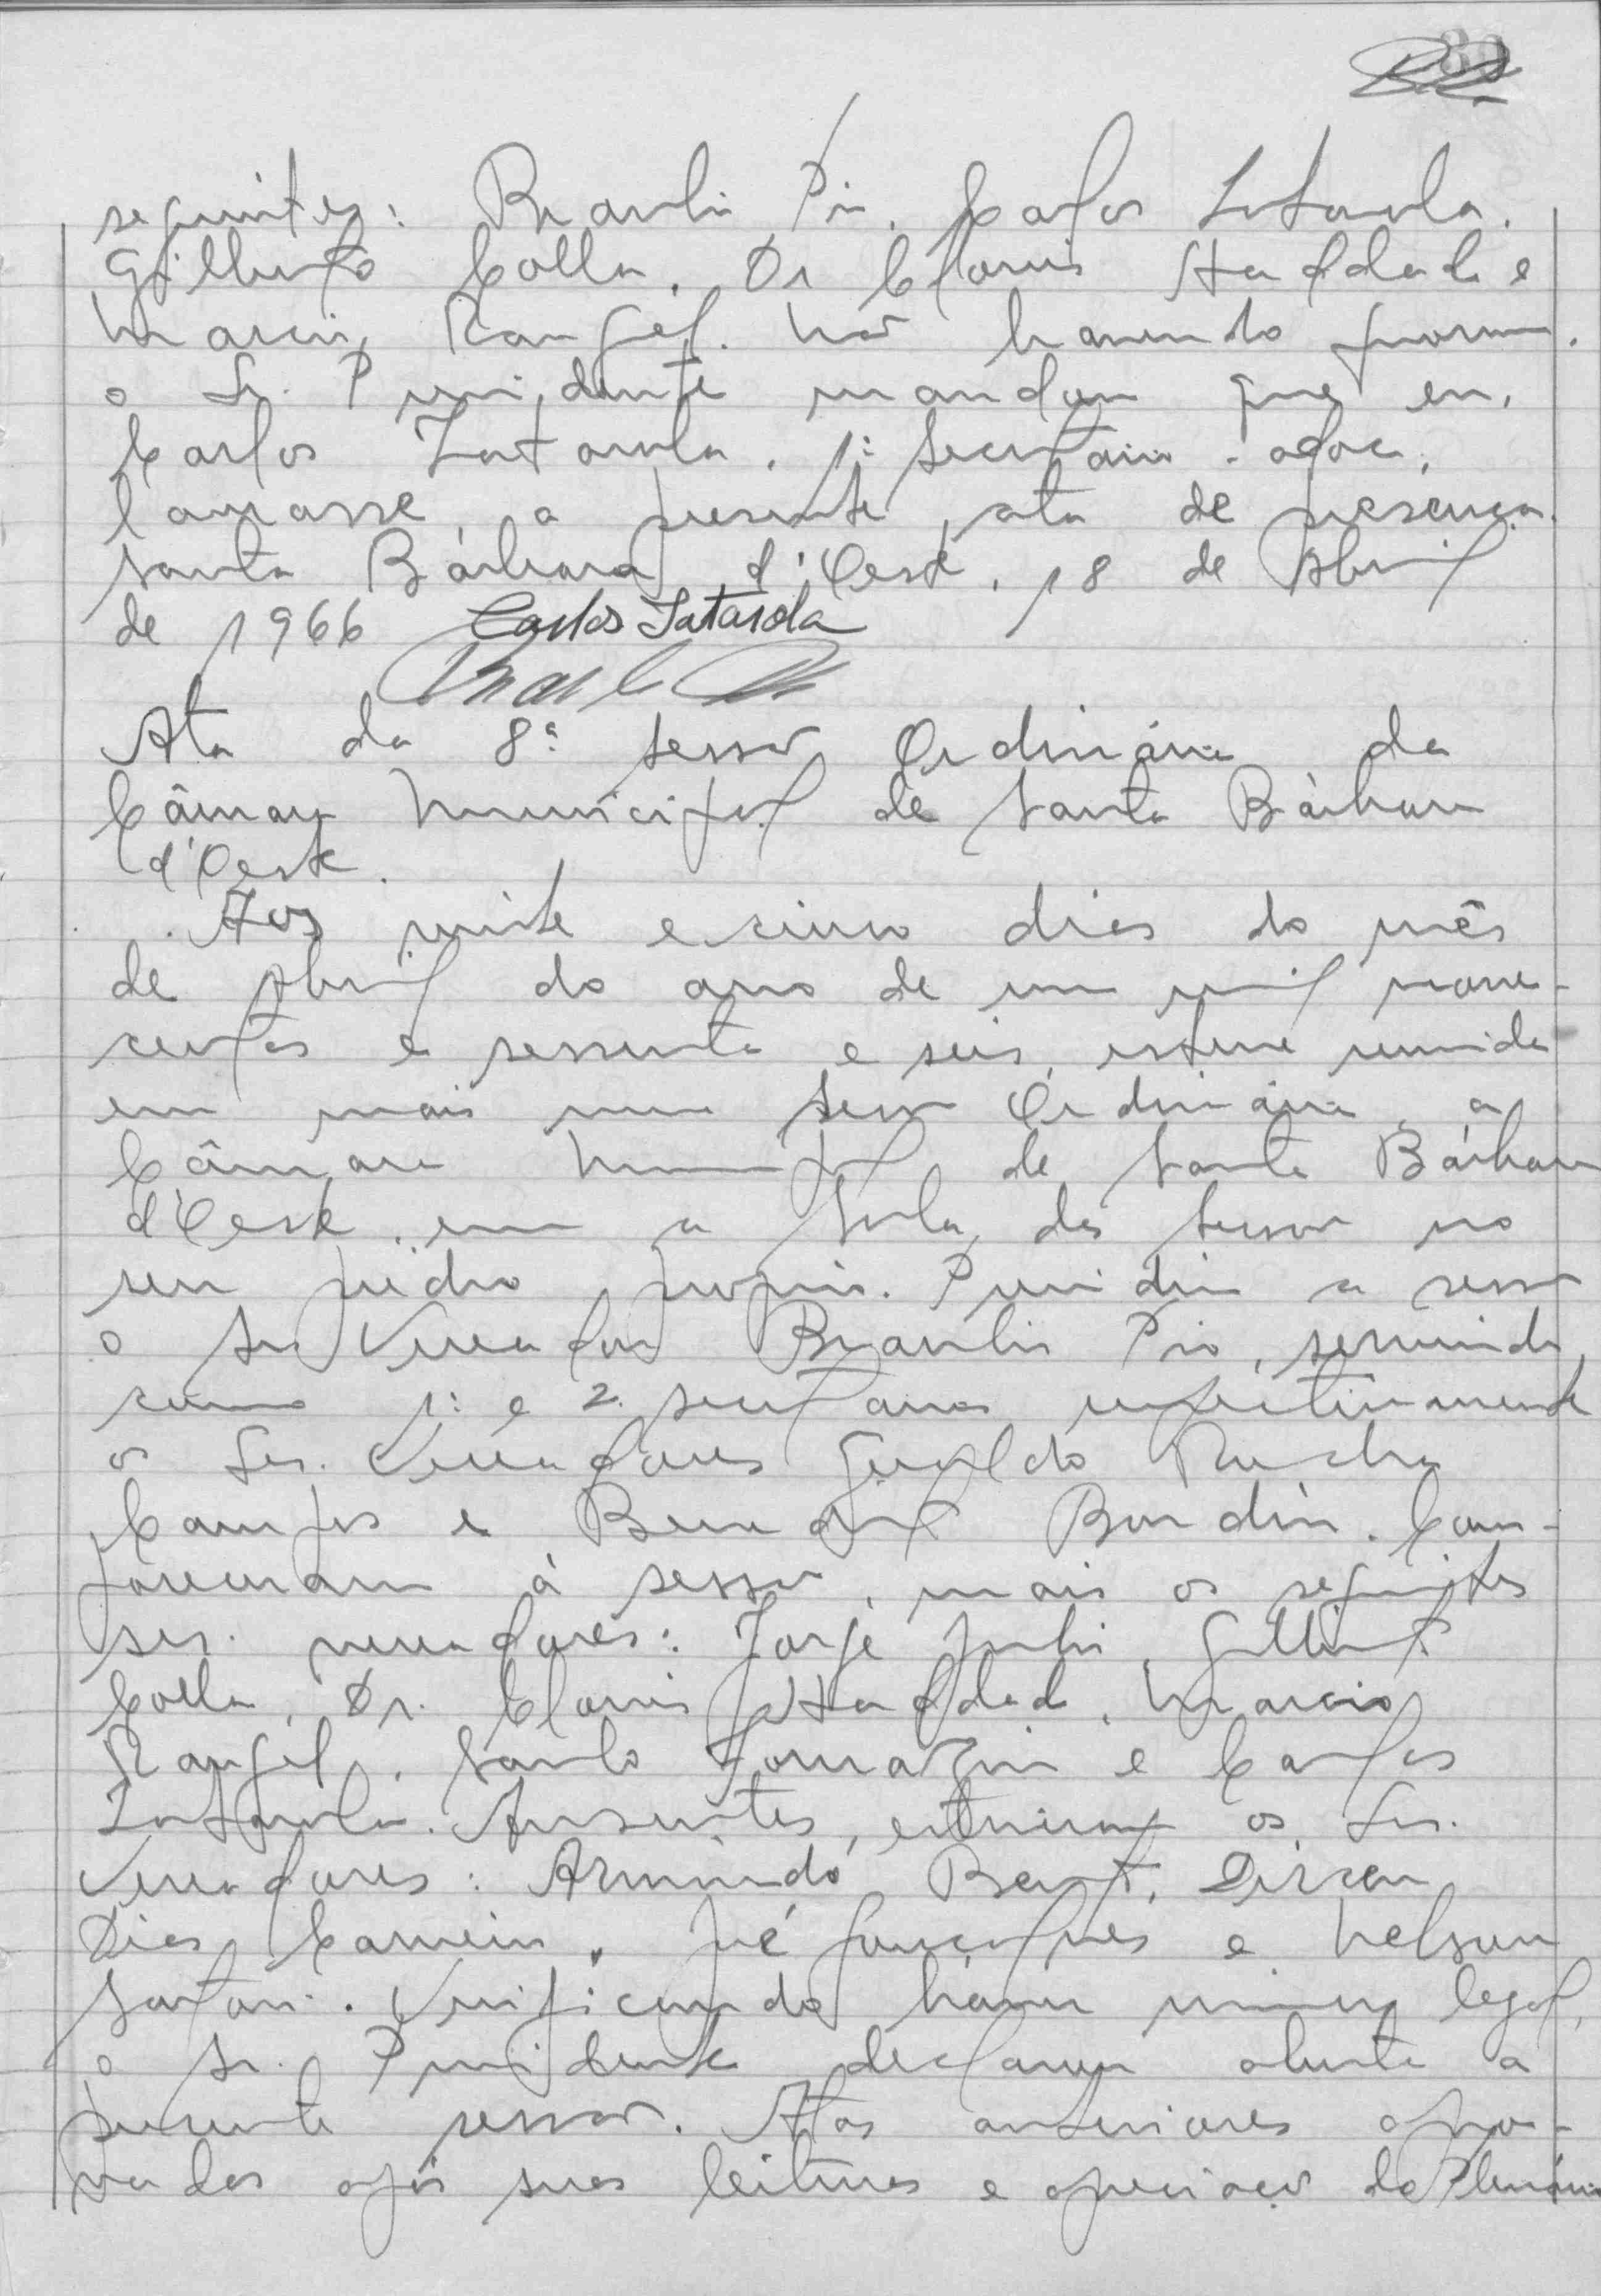 seguintes: Braulio Pio, Carlos Latarola,
Gilberto Colla, Dr Clovis Haddad e
Marcio Rangel. Não havendo quorum,
o Sr. Presidente mandou que eu,
Carlos Latarola, 1º Secretario - adoc,
lavrasse a presente ata de presença.
Santa Bárbara d'Oeste, 18 de Abril
de 1966 Carlos Latarola
Ata da 8ª sessão Ordinária da
Câmara Municipal de Santa Bárbara
d'Oeste.
Aos vinte e cinco dias do mês
de Abril do ano de um mil nove-
centos e sessenta e seis, esteve reunida
em mais uma sessão Ordinária, a
Câmara Municipal de Santa Bárbara
d'Oeste, em a Sala das sessões no
seu predio proprio. Presidiu a sessão
o Sr Vereador Braulio Pio, servindo
como 1º e 2º secretarios respectivamente
os Srs. Vereadores Geraldo Rocha
Campos e Benedito Bordin. Com-
pareceram à sessão, mais os seguintes
srs. vereadores: Jorge Gilberto
Colla, Dr. Clovis Haddad, Marcio
Rangel, Santo Tomazin e Carlos
Latarola. Ausentes, estiveram os Srs.
Vereadores: Armindo Dirceu
Dias Carneiro, José Gonçalves e Nelson
Verificando haver numero legal,
o Sr. Presidente declarou aberta a
presente sessão. Atas anteriores apro-
vadas após suas leituras e apreciação do Plenário